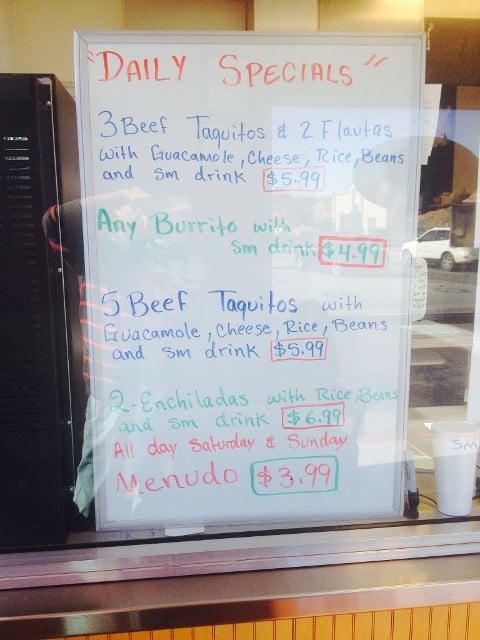 "DAILY SPECIALS"
3 Beef Taquitos & 2 Flautas
with Guacamole, Cheese, Rice, Beans
and sm drink $5.99
Any Burrito with
sm drink $4.99
5 Beef Taquitos with
Guacamole, Cheese, Rice, Beans
and sm drink $5.99
2-Enchiladas with Rice, Beans
and sm drink $6.99
All day Saturday & Sunday
Menudo $3.99
SM